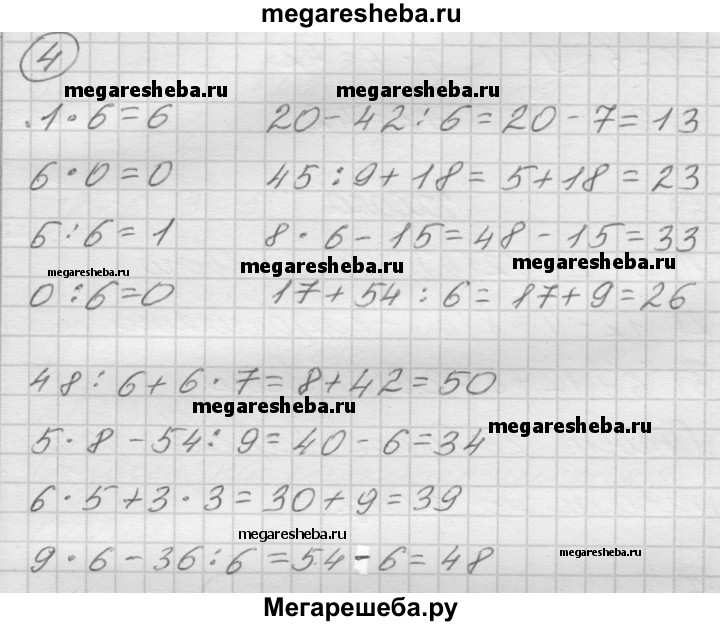 megaresheba.ru
4
megaresheba.ru megaresheba.ru
1·6=6 20-42:6=20-7=13
6·0=0 45:9+18=5+18=23
6:6=1 8·6-15=48-15=33
megaresheba.ru megaresheba.ru megaresheba.ru
0:6=0 17+54:6=17+9=26
48:6+6·7=8+42=50
megaresheba.ru megaresheba.ru
5·8-54:9=40-6=34
6·5+3·3=30+9=39
megaresheba.ru megaresheba.ru
9·6-36:6=54-6=48
Мегарешеба.ру